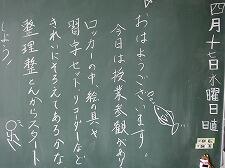 四月十七日水曜日 日直
おはようございます。
今日は授業参観があり
ロッカーの中、絵の具や
習字セット、リコーダーなど
きれいにそろえてあるかな
整理整とんからスタート
しよう